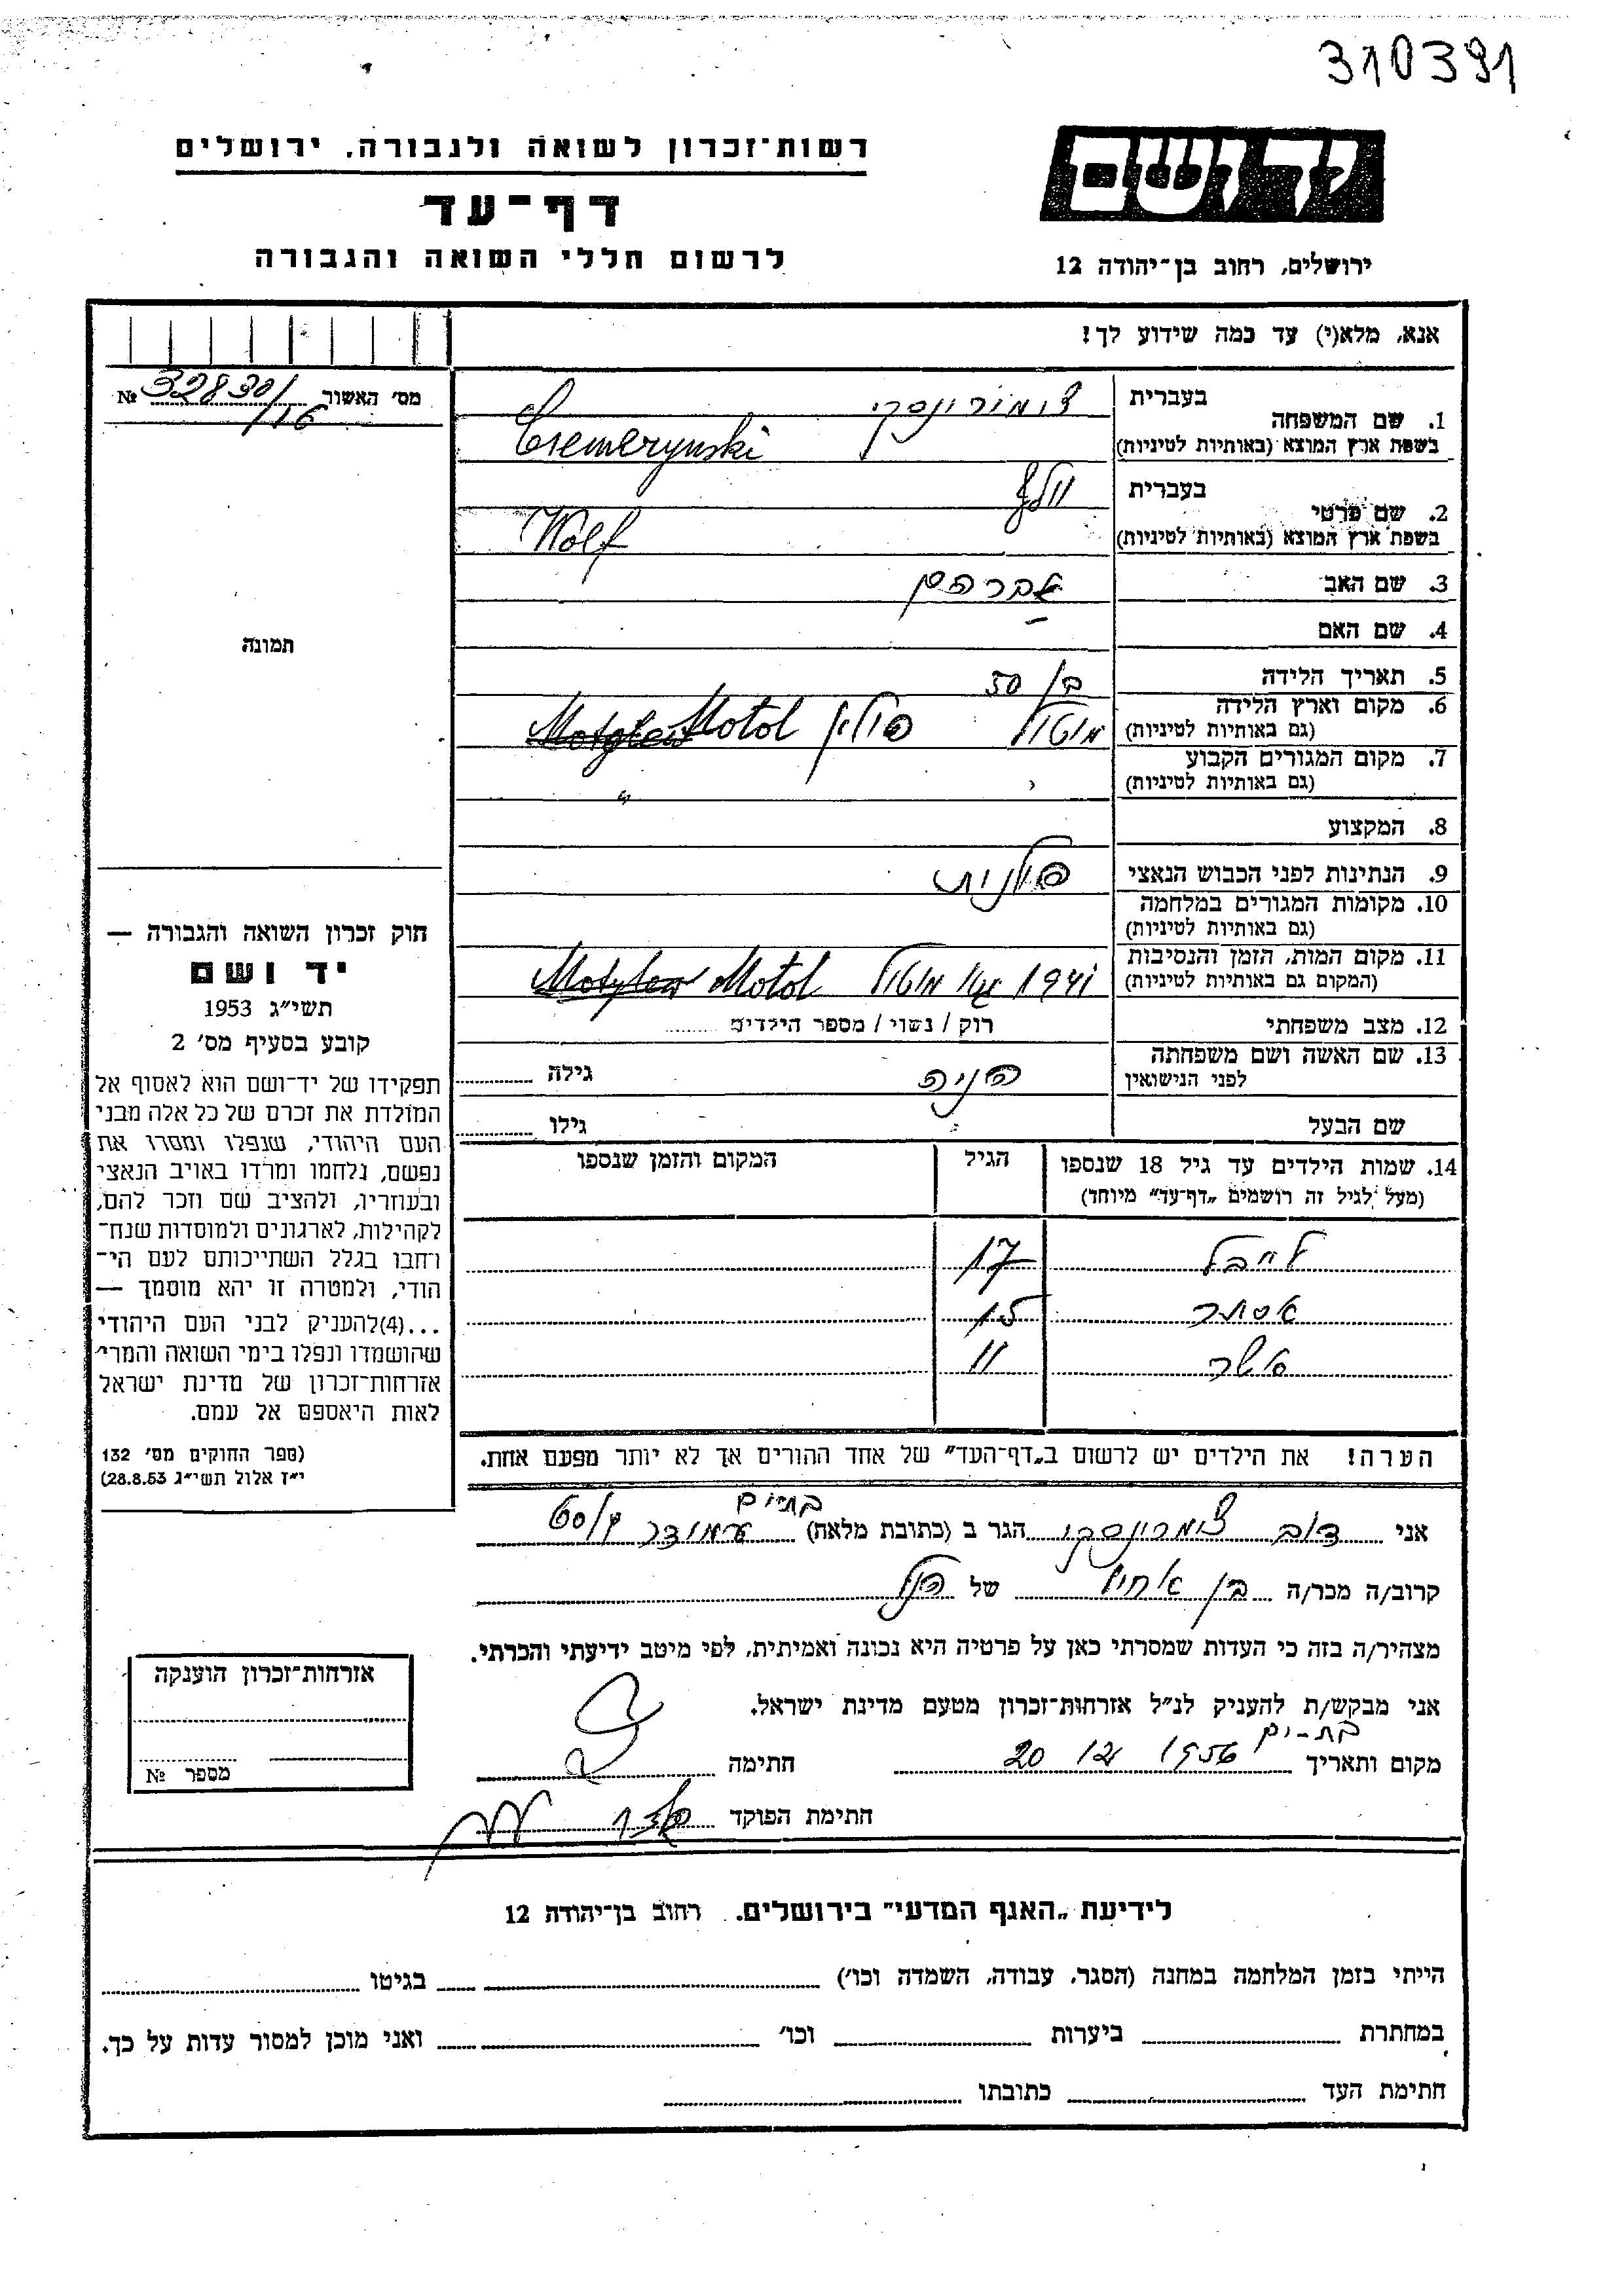 310391
יד ושם
רשות־זכרון לשואה ולגבורה, ירושלים
דף־עד
לרשום חללי השואה והגבורה
ירושלים, רחוב בן־יהודה 12
אנא, מלא(י) עד כמה שידוע לך!
מס׳ האשור 32830/116 №
1. שם המשפחה
בעברית
בשפת ארץ המוצא (באותיות לטיניות) Czemerynski
2. שם פרטי
בעברית וולף
בשפת ארץ המוצא (באותיות לטיניות) Wolf
3. שם האב אברהם
4. שם האם —
5. תאריך הלידה בן 50
6. מקום וארץ הלידה
(גם באותיות לטיניות) מוטול פולין Motol
7. מקום המגורים הקבוע
(גם באותיות לטיניות) ״
8. המקצוע
9. הנתינות לפני הכבוש הנאצי פולנית
10. מקומות המגורים במלחמה
(גם באותיות לטיניות)
11. מקום המות, הזמן והנסיבות
(המקום גם באותיות לטיניות) 1941 מוטול Motol
12. מצב משפחתי רוק / נשוי / מספר הילדים
13. שם האשה ושם משפחתה
לפני הנישואין גילה
שם הבעל גילו
14. שמות הילדים עד גיל 18 שנספו הגיל המקום והזמן שנספו
(מעל לגיל זה רושמים „דף־עד״ מיוחד)
לייבל 17
אסתר 15
אשר 11
הערה! את הילדים יש לרשום ב„דף־העד״ של אחד ההורים אך לא יותר מפעם אחת.
תמונה
חוק זכרון השואה והגבורה —
יד ושם
תשי״ג 1953
קובע בסעיף מס׳ 2
תפקידו של יד־ושם הוא לאסוף אל
המולדת את זכרם של כל אלה מבני
העם היהודי, שנפלו ומסרו את
נפשם, נלחמו ומרדו באויב הנאצי
ובעוזריו, ולהציב שם וזכר להם,
לקהילות, לארגונים ולמוסדות שנח־
רחבו בגלל השתייכותם לעם הי־
הודי, ולמטרה זו יהא מוסמך —
...(4)להעניק לבני העם היהודי
שהושמדו ונפלו בימי השואה והמרי
אזרחות־זכרון של מדינת ישראל
לאות היאספם אל עמם.
(ספר החוקים מס׳ 132
י״ז אלול תשי״ג 28.8.53)
בת־ים
אני דוב צמרונסקי הגר ב (כתובת מלאה) עמידר 60
קרוב/ה מכר/ה בן אחיו של הנ״ל
מצהיר/ה בזה כי העדות שמסרתי כאן על פרטיה היא נכונה ואמיתית, לפי מיטב ידיעתי והכרתי.
אני מבקש/ת להעניק לנ״ל אזרחות־זכרון מטעם מדינת ישראל.
בת־ים
מקום ותאריך 20 12 1956 חתימה
חתימת הפוקד
אזרחות־זכרון הוענקה
מספר №
לידיעת „האגף המדעי״ בירושלים. רחוב בן־יהודה 12
הייתי בזמן המלחמה במחנה (הסגר, עבודה, השמדה וכו׳) בגיטו
במחתרת ביערות וכו׳ ואני מוכן למסור עדות על כך.
חתימת העד כתובתו